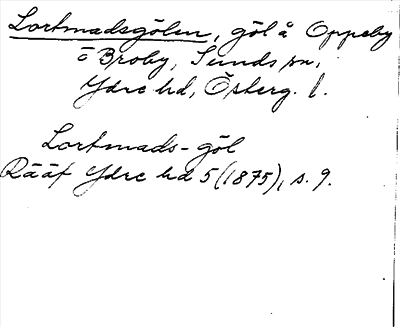 Lortmadsgölen, göl å Oppeby
o Broby, Sunds sn,
Ydre hd, Österg. l.
Lortmads-göl
Rääf Ydre hd 5 (1875), s. 9.